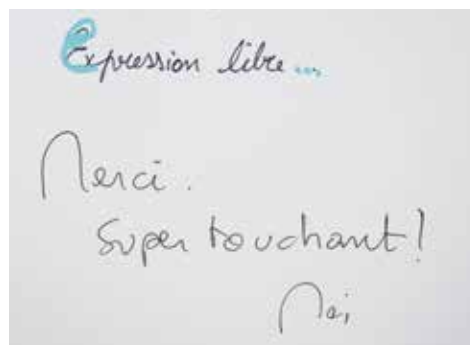 Expression libre...
Merci.
Super touchant!